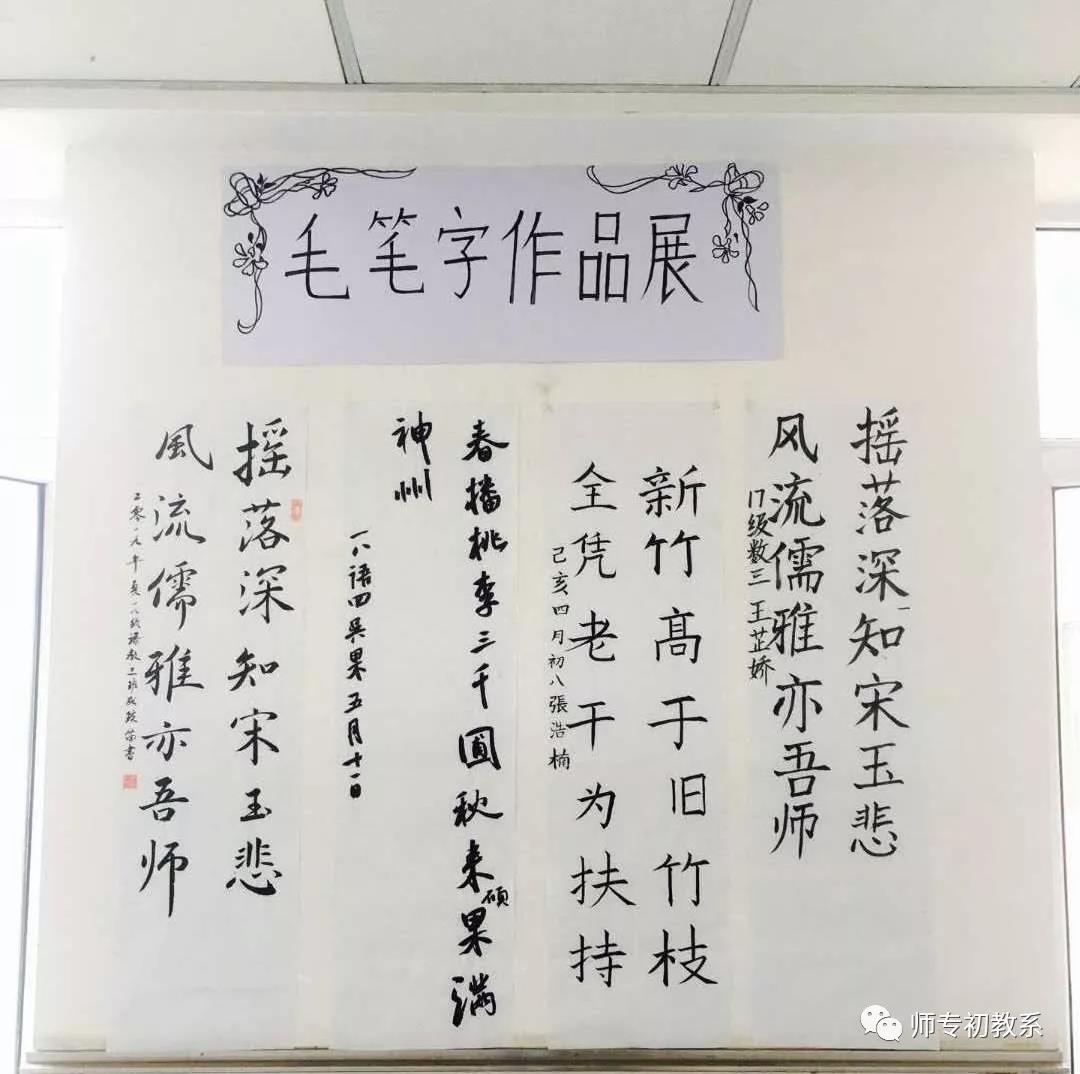 毛笔字作品展
摇落深知宋玉悲
风流儒雅亦吾师
17级数三 王芷娇
新竹高于旧竹枝
全凭老干为扶持
己亥四月初八張浩楠
春播桃李三千圃秋来硕果满
神州
一八语四吴果五月十一日
摇落深知宋玉悲
風流儒雅亦吾师
二零一九年夏一八级
书
师专初教系